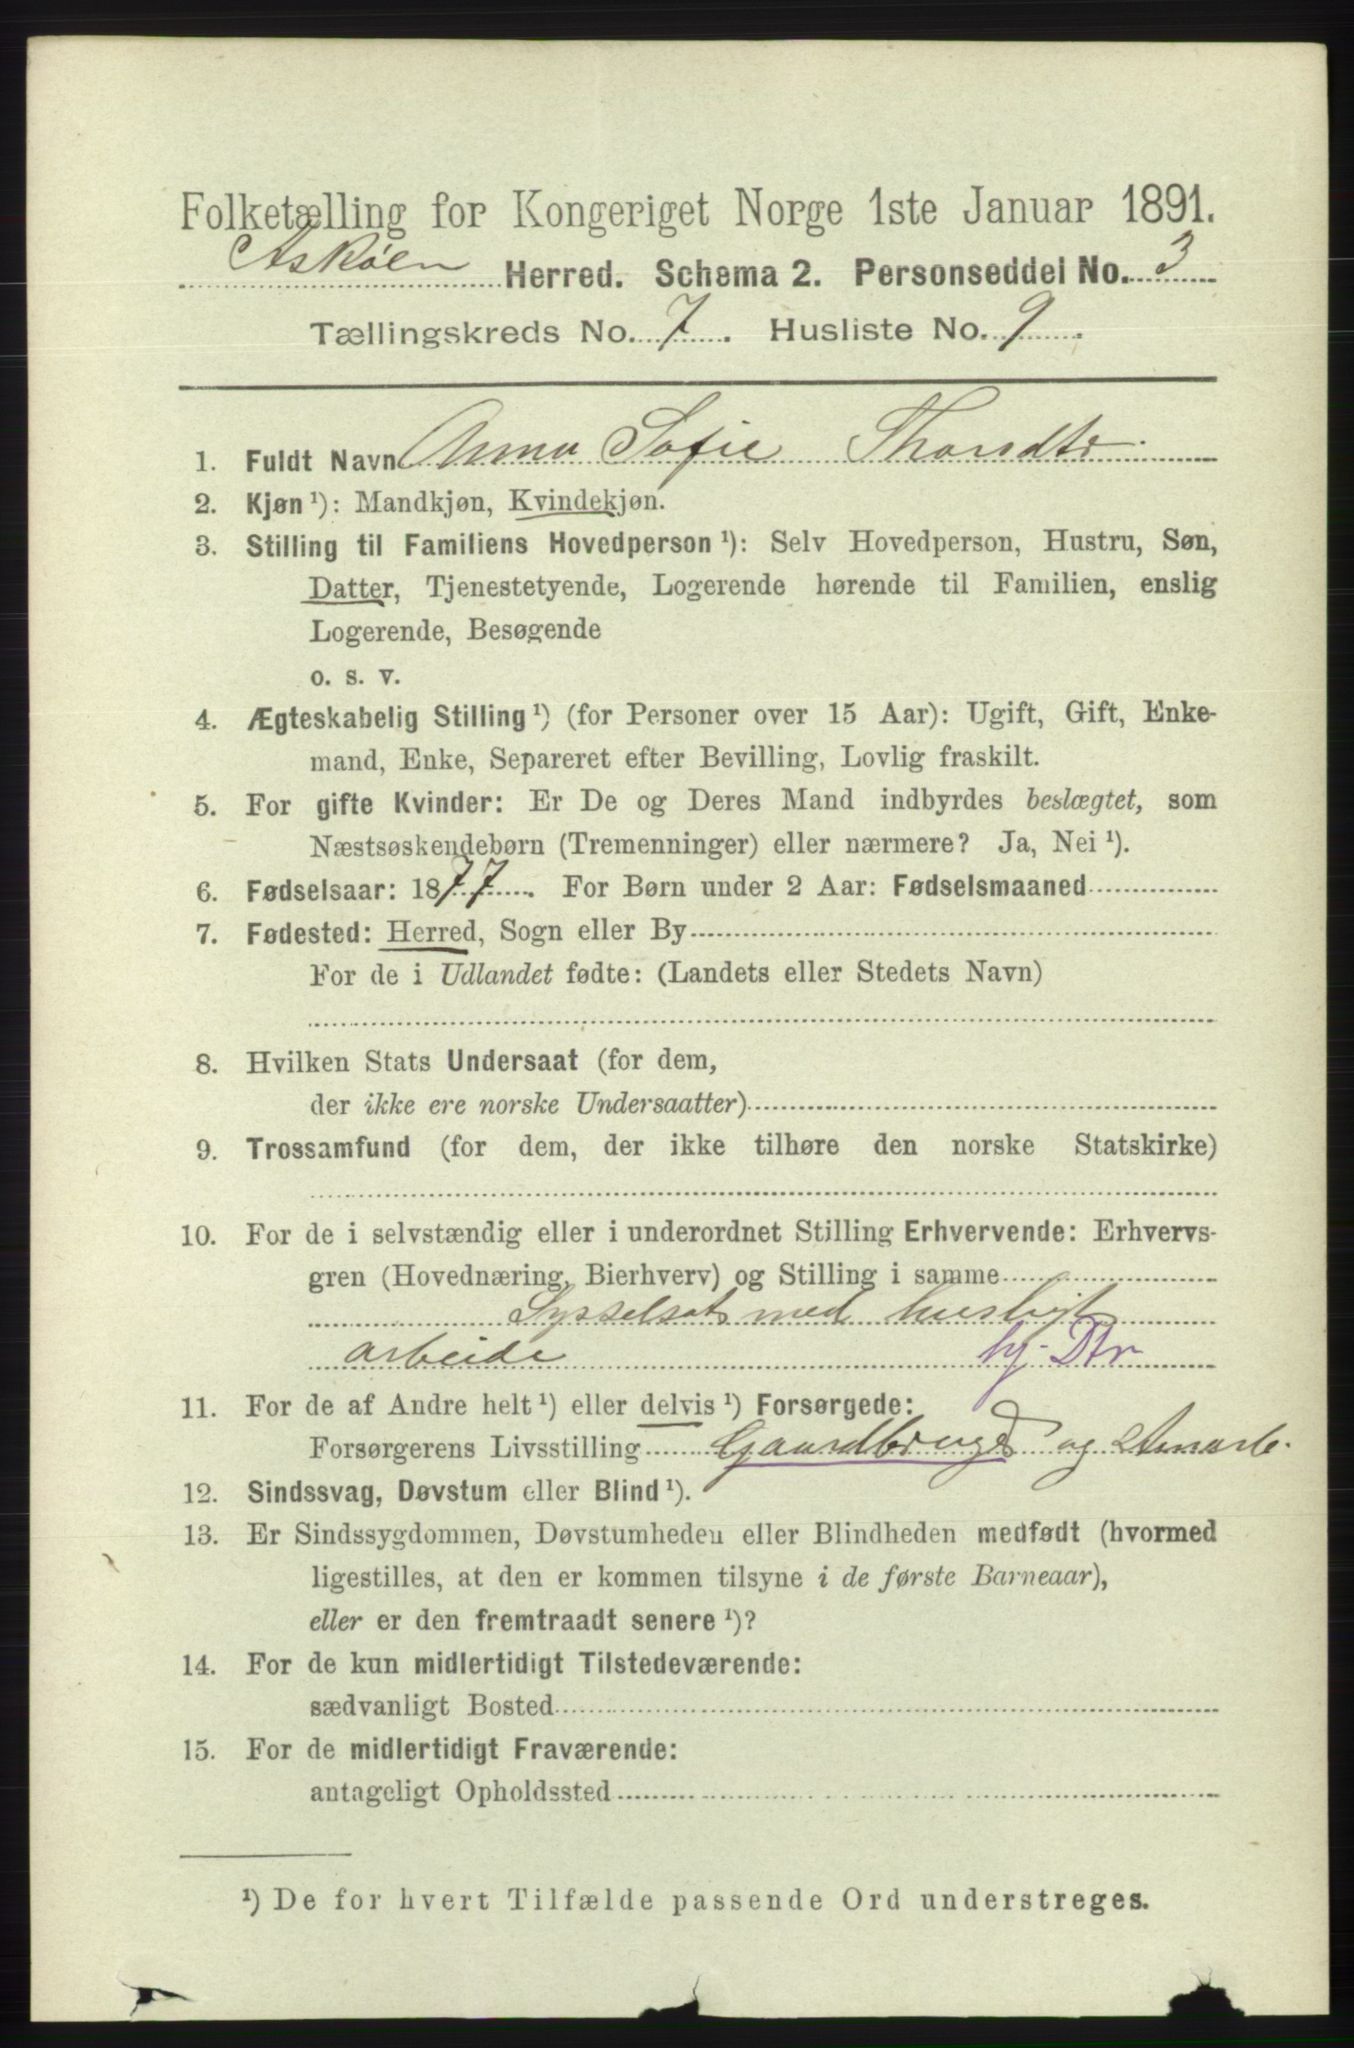 Folketælling for Kongeriget Norge 1ste Januar 1891.
Askøen Herred. Schema 2. Personseddel No. 3
Tællingskreds No. 7. Husliste No. 9.
1. Fuldt Navn Anna Sofie Thorsdtr.
2. Kjøn ¹): Mandkjøn, Kvindekjøn.
3. Stilling til Familiens Hovedperson ¹): Selv Hovedperson, Hustru, Søn,
Datter, Tjenestetyende, Logerende hørende til Familien, enslig
Logerende, Besøgende
o. s. v.
4. Ægteskabelig Stilling ¹) (for Personer over 15 Aar): Ugift, Gift, Enke-
mand, Enke, Separeret efter Bevilling, Lovlig fraskilt.
5. For gifte Kvinder: Er De og Deres Mand indbyrdes beslægtet, som
Næstsøskendebørn (Tremenninger) eller nærmere? Ja, Nei ¹).
6. Fødselsaar: 1877. For Børn under 2 Aar: Fødselsmaaned
7. Fødested: Herred, Sogn eller By
For de i Udlandet fødte: (Landets eller Stedets Navn)
8. Hvilken Stats Undersaat (for dem,
der ikke ere norske Undersaatter)
9. Trossamfund (for dem, der ikke tilhøre den norske Statskirke)
10. For de i selvstændig eller i underordnet Stilling Erhvervende: Erhvervs-
gren (Hovednæring, Bierhverv) og Stilling i samme
Sysselsat med husligt
arbeide hj. Dtr
11. For de af Andre helt ¹) eller delvis ¹) Forsørgede:
Forsørgerens Livsstilling Gaardbruger og
12. Sindssvag, Døvstum eller Blind ¹).
13. Er Sindssygdommen, Døvstumheden eller Blindheden medfødt (hvormed
ligestilles, at den er kommen tilsyne i de første Barneaar),
eller er den fremtraadt senere ¹)?
14. For de kun midlertidigt Tilstedeværende:
sædvanligt Bosted
15. For de midlertidigt Fraværende:
antageligt Opholdssted
¹) De for hvert Tilfælde passende Ord understreges.